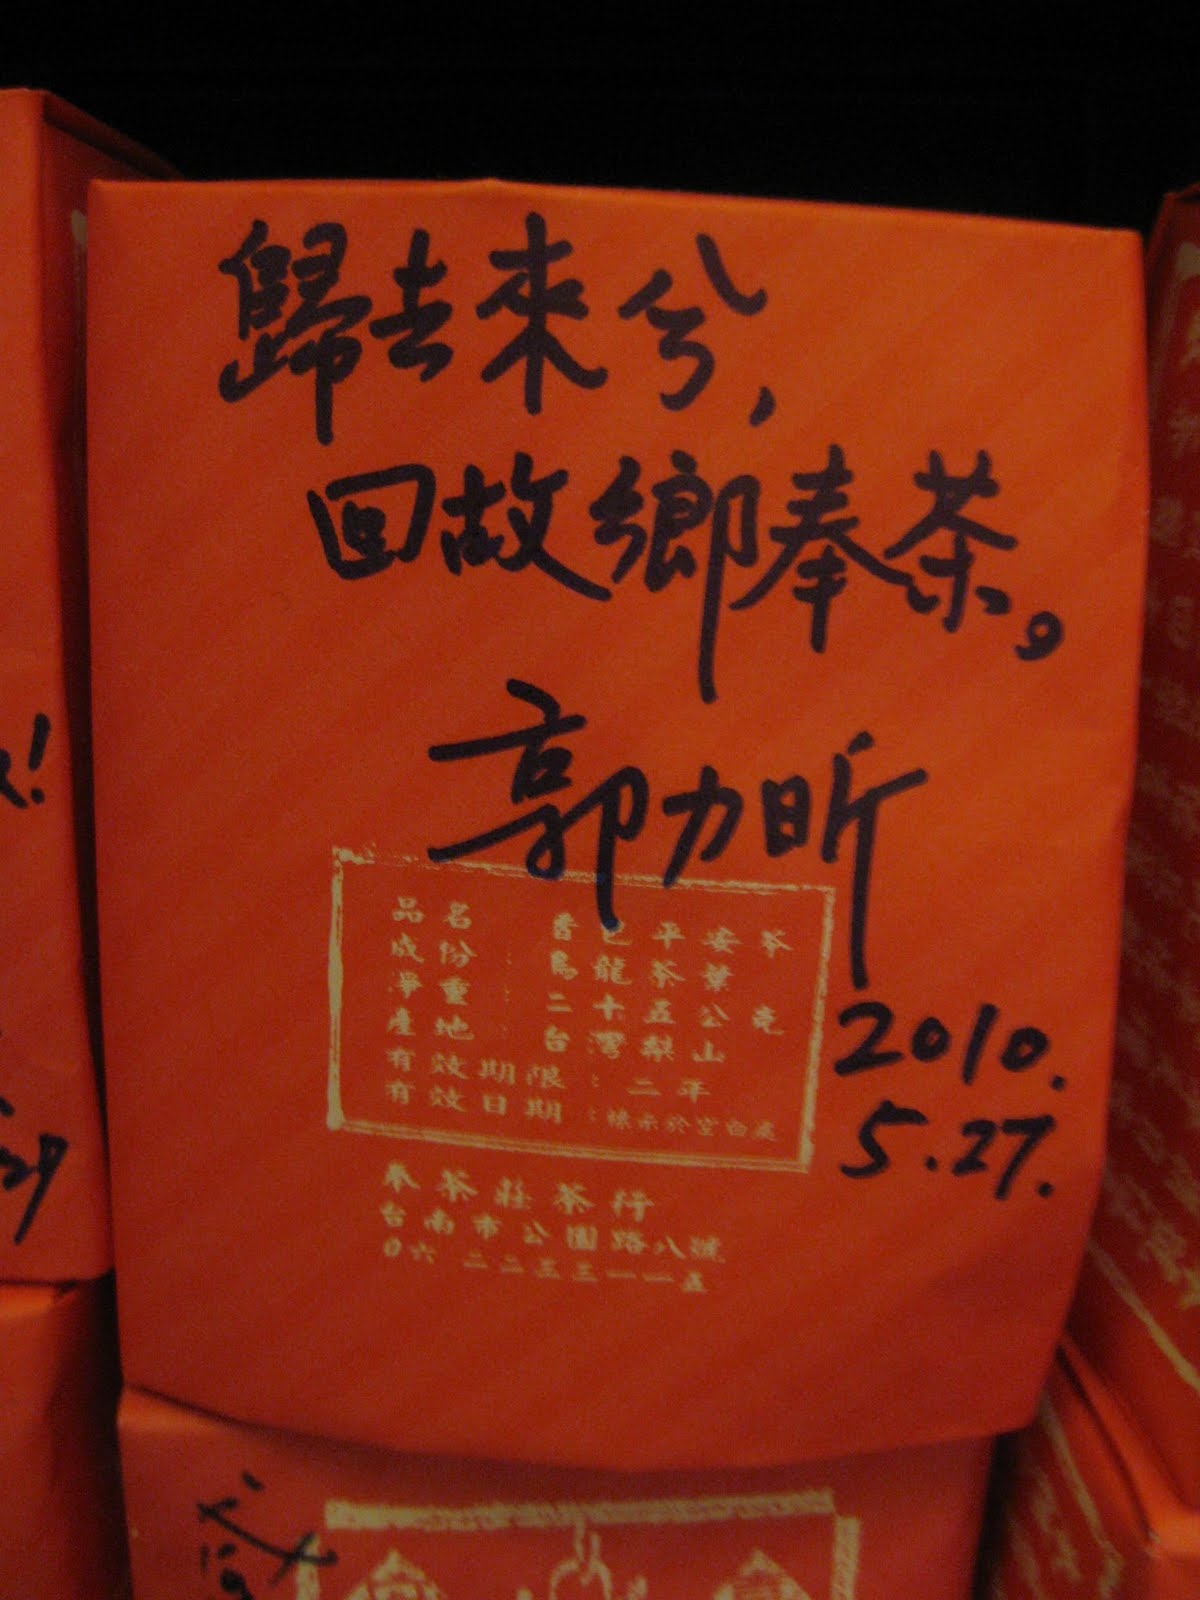 歸去來兮,
回故鄉奉茶。
郭力昕
2010.
5.27.
品名 平安茶
成份:烏龍茶葉
淨重:二十五公克
產地:台灣梨山
有效期限:二年
有效日期:標示於空白處
奉茶莊茶行
台南市公園路八號
0六 二二三三一一五